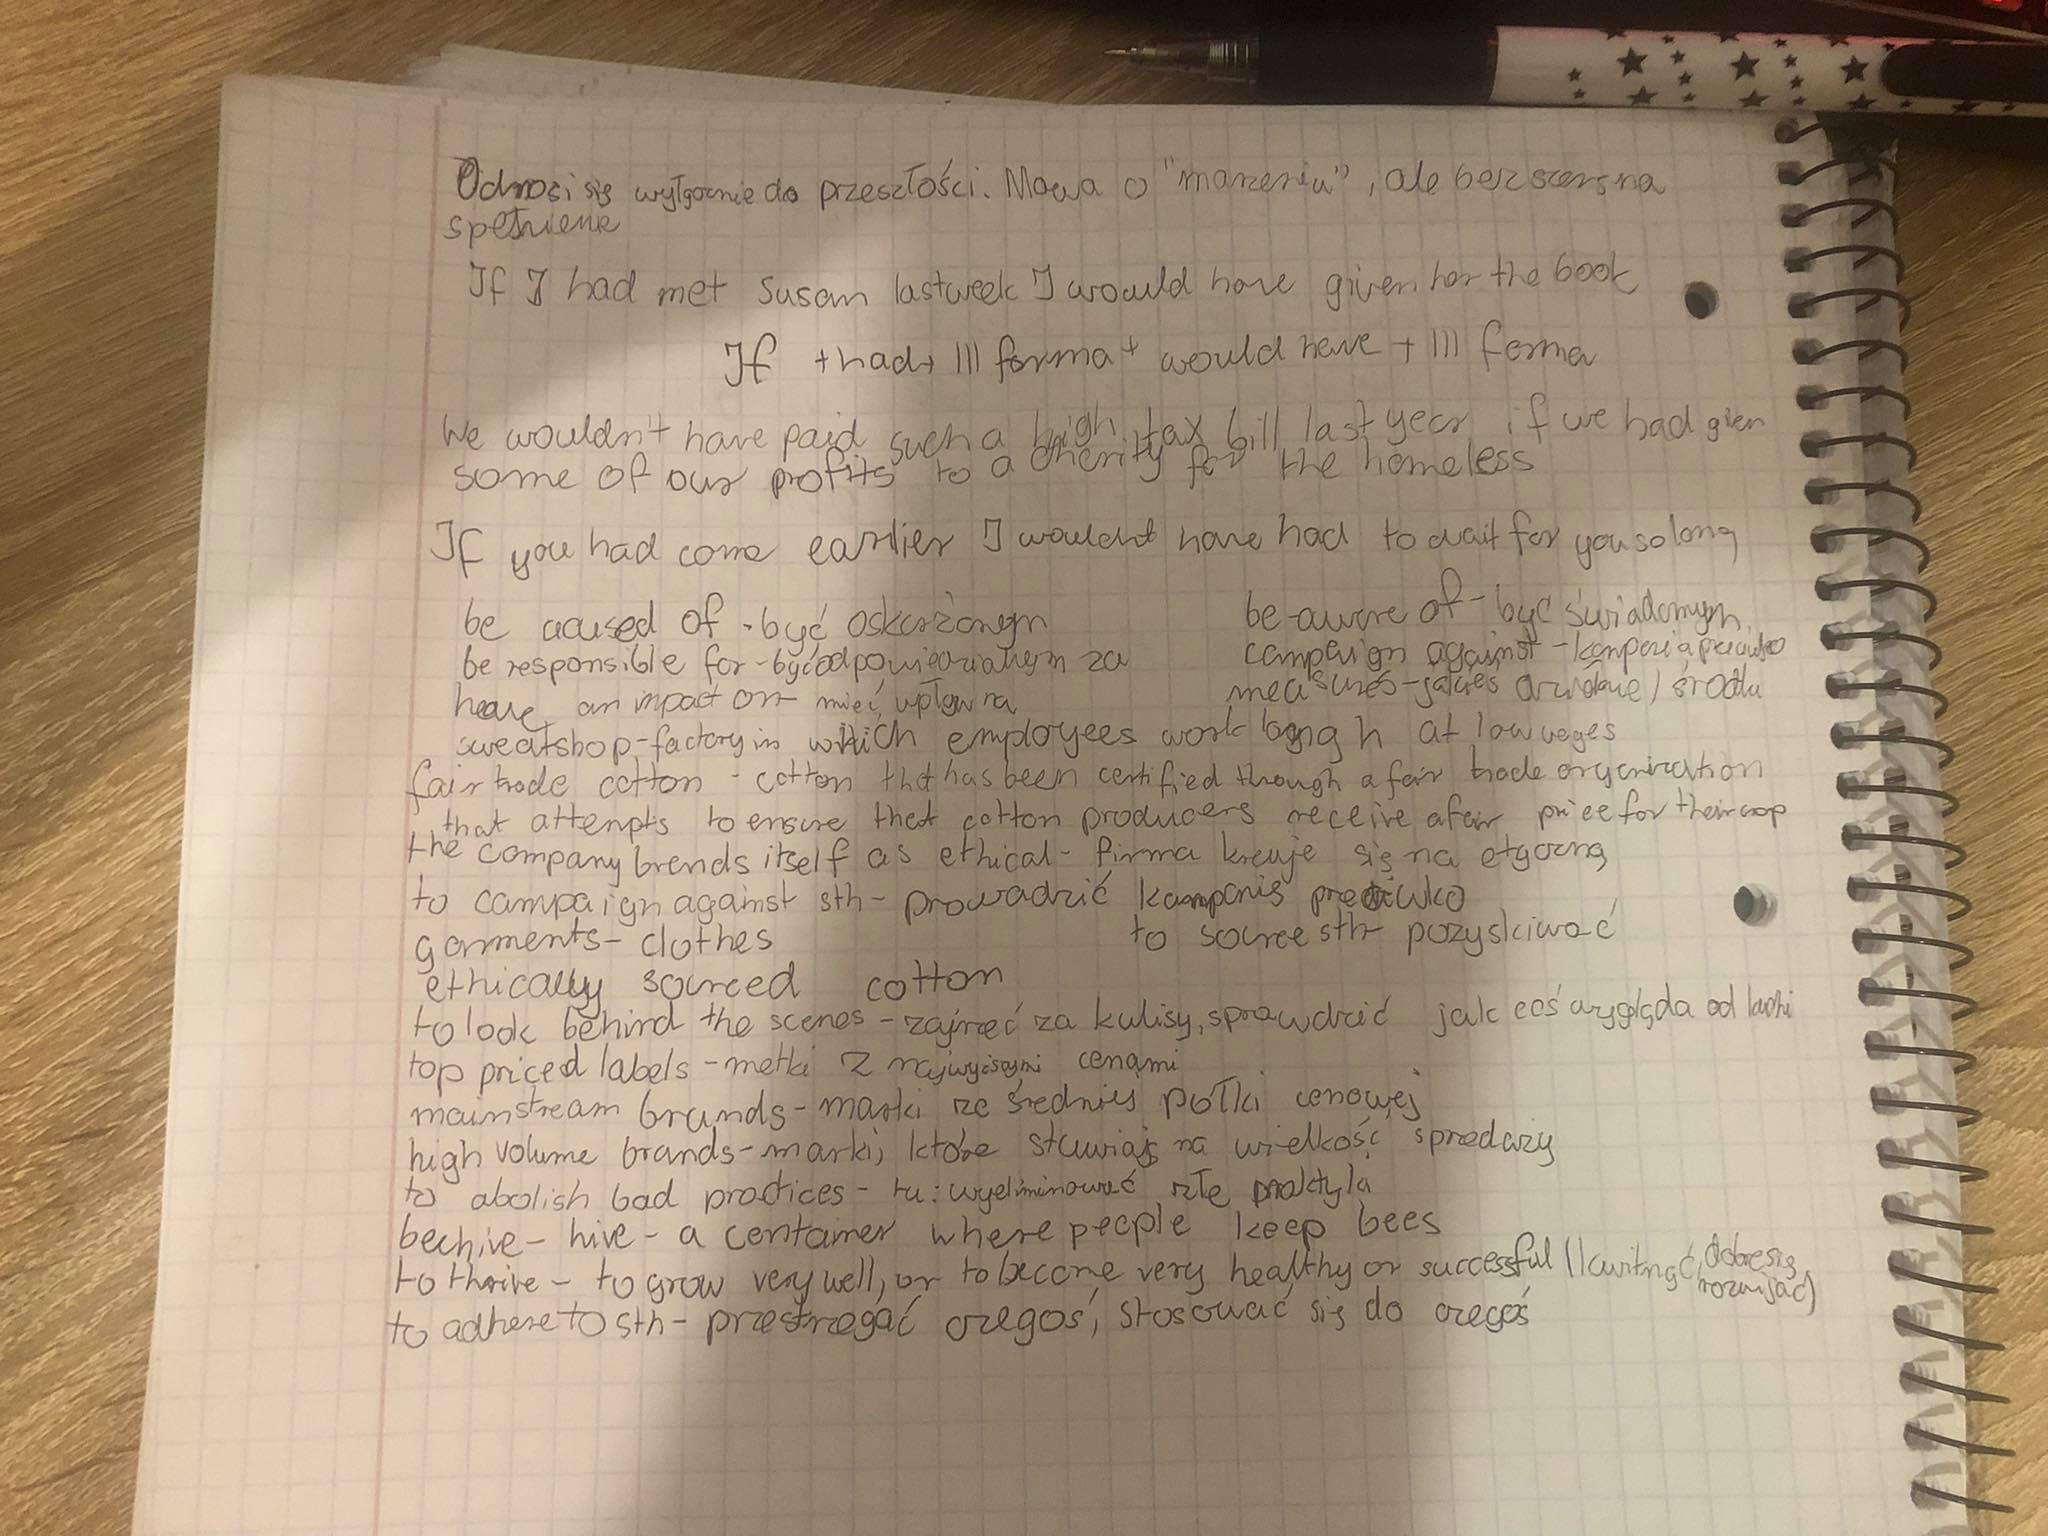 Odnosi się wyłącznie do przeszłości. Mowa o "marzeniu", ale bez szans na
spełnienie
If I had met Susan last week I would have given her the book
If + had + III forma + would have + III forma
We wouldn't have paid such a high tax bill last year if we had given
some of our profits to a cherity for the homeless
If you had come earlier I wouldnt have had to wait for you so long
be acused of - być oskarżonym
be aware of - być świadomym
be responsible for - być odpowiedzialnym za
campaign against - kampania przeciwko
have an impact on - mieć wpływ na
measures - jakieś działanie / środki
sweatshop - factory in which employees work long h at low weges
fair trade cotton - cotton that has been certified through a fair trade organization
that attempts to ensure that cotton producers receive a fair price for their crop
the company brends itself as ethical - firma kreuje się na etyczną
to campaign against sth - prowadzić kampanię przeciwko
garments - clothes
to source sth - pozyskiwać
ethically sourced cotton
to look behind the scenes - zajrzeć za kulisy, sprawdzić jak coś wygląda od kuchni
top priced labels - metki z najwyższymi cenami
mainstream brands - marki ze średniej półki cenowej
high volume brands - marki, które stawiają na wielkość sprzedaży
to abolish bad practices - tu: wyeliminować złe praktyki
beehive - hive - a container where people keep bees
to thrive - to grow very well, or to become very healthy or successful (kwitnąć, dobrze się
rozwijać)
to adhere to sth - przestrzegać czegoś, stosować się do czegoś